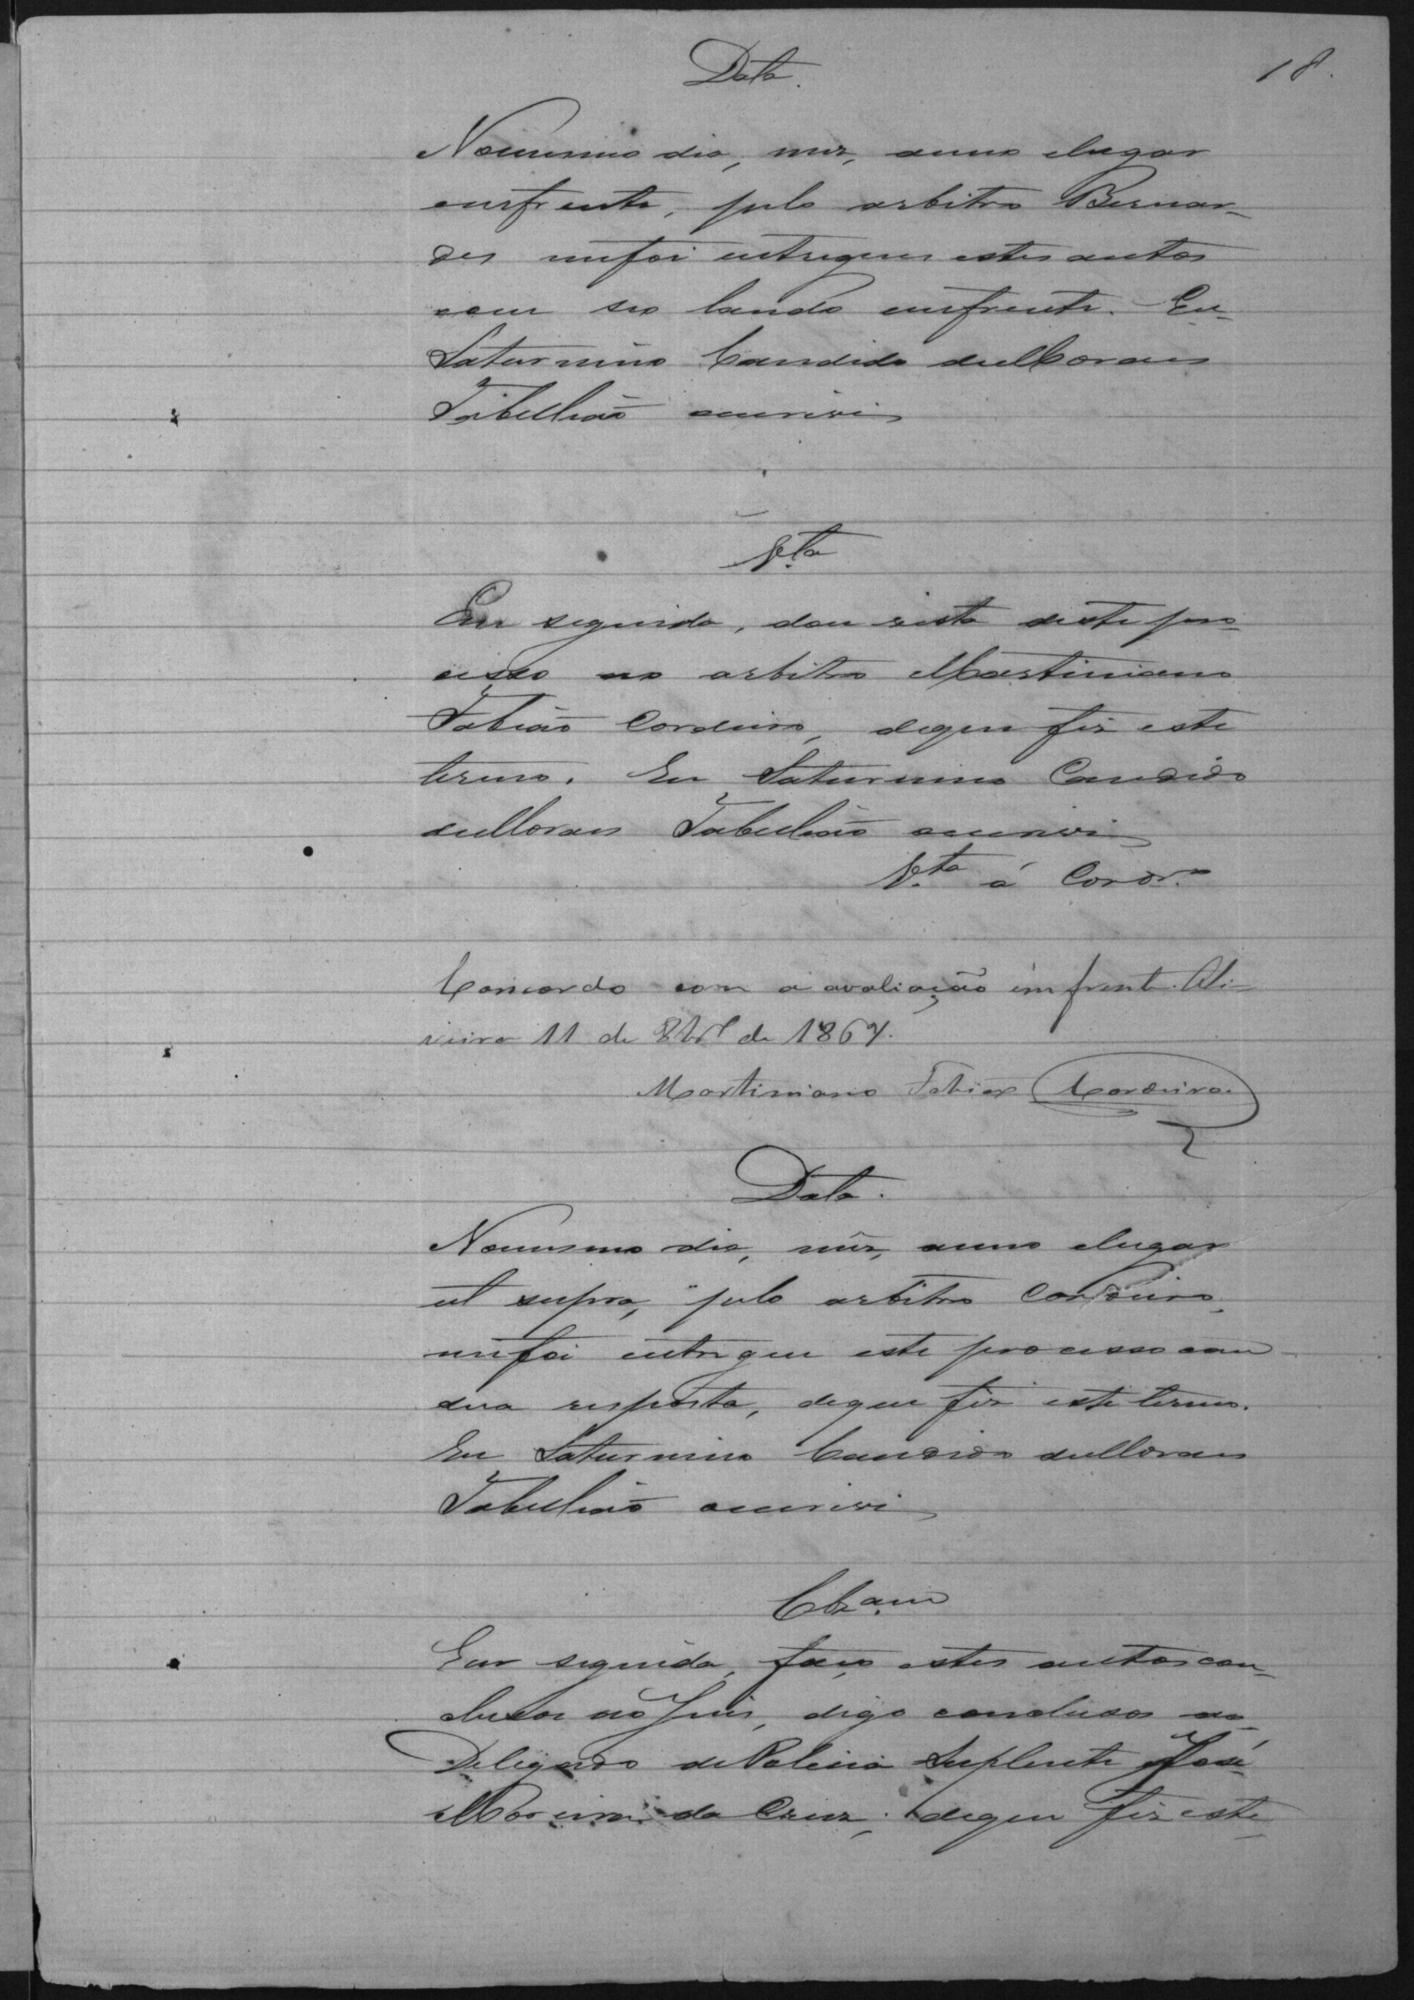 18.
Data.
No mesmo dia, mez, anno e lugar
em frente, pelo arbitro Bernar-
des me foi entregues estes autos
com seo laudo em frente. Eu
Saturnino Candido de Moraes
Tabellião escrivi
V.ta
Em seguida, dou vista deste pro-
cesso ao arbitro Martiniano
Fabião Cordeiro, de que fiz este
termo. Eu Saturnino Candido
de Moraes Tabellião escrivi
V.ta á Cordr.o
Concordo com a avaliação em frente. Oli-
veira 11 de 8br.o de
Martiniano Fabião Cordeiro.
Data.
No mesmo dia, mez, anno e lugar
ut supra, pelo arbitro Cordeiro,
me foi entregue este processo com
sua resposta, de que fiz este termo.
Eu Saturnino Candido de Moraes
Tabellião escrivi
Clz.am
Em seguida, faço estes autos con-
clusos ao Juis, digo conclusos ao
Delegado de Policia Suplente José
Moreira da Cruz, de que fiz este